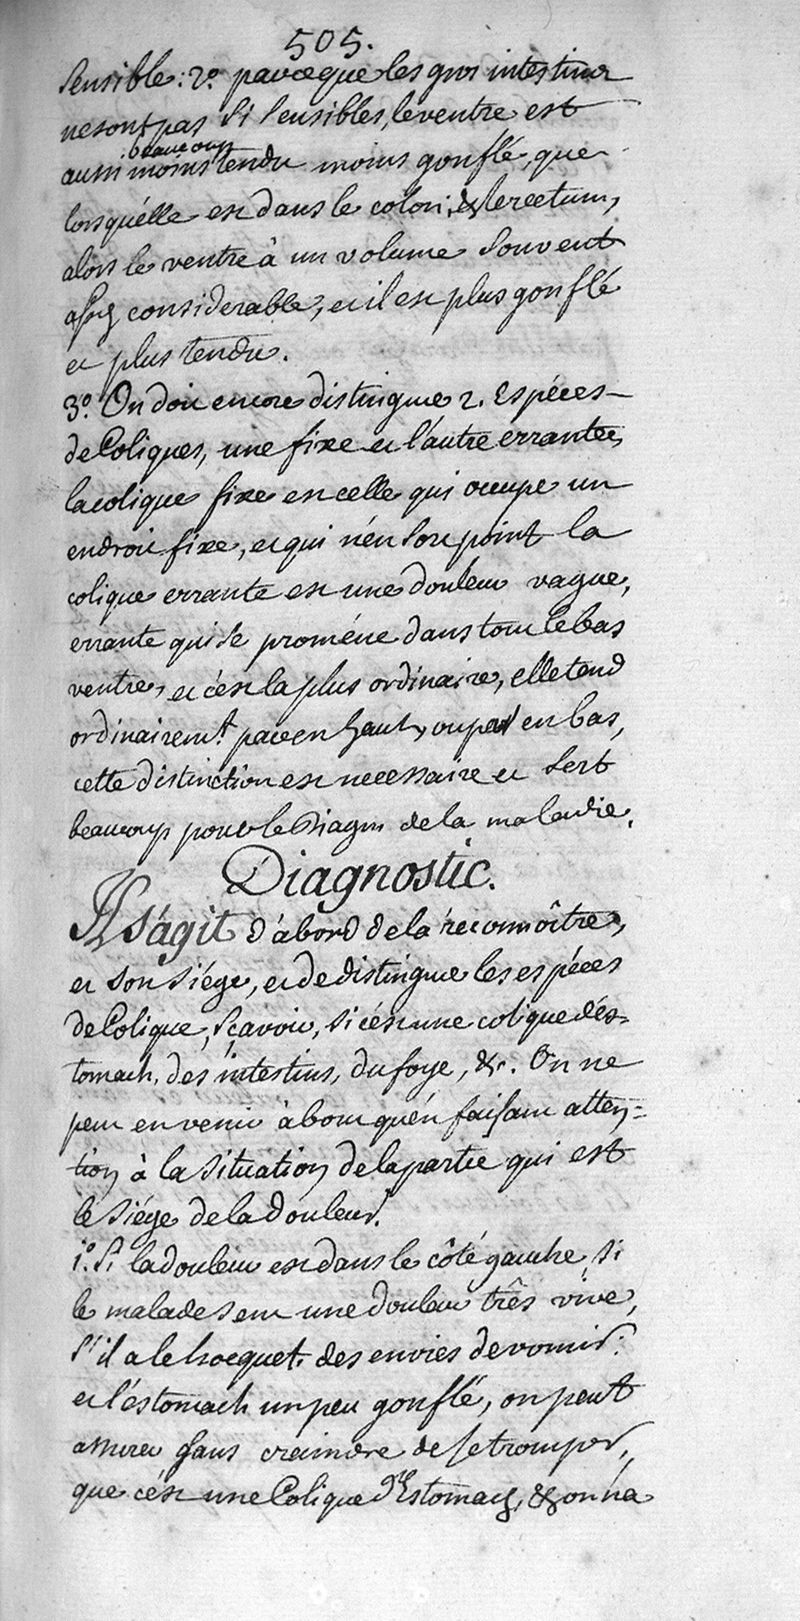 505.
sensible: 2.° parceque les gros intestins
ne sont pas si sensibles, le ventre est
beaucoup
aussi moins tendu moins gonflé, que
lorsqu'elle est dans le colon, & le rectum,
alors le ventre à un volume souvent
assez considerable, et il est plus gonflé
et plus tendu.
3.° On doit encore distinguer 2. Espéces
de Coliques, une fixe et l'autre errante,
la colique fixe est celle qui occupe un
endroit fixe, et qui n'en sort point la
colique errante est une douleur vague,
errante qui se proméne dans tout le bas
ventre, et c'est la plus ordinaire, elle tend
ordinairem.t par en haut, ou par en bas,
cette distinction est necessaire et sert
beaucoup pour le Diagn de la maladie.
Diagnostic.
Il s'agit d'abord de la reconnôitre,
et son siége, et de distinguer les espéces
de Colique, sçavoir, si c'est une colique d'es=
tomach, des intestins, du foye, &c. On ne
peut en venir à bout qu'en faisant atten=
tion à la situation de la partie qui est
le siége de la douleur.
1.° Si la douleur est dans le côté gauche, si
le malade sent une douleur três vive,
s'il a le hocquet, des envies de vomir:
et l'estomach un peu gonflé, on peut
assurer sans craindre de se tromper,
que c'est une Colique d'Estomach, & on n'a